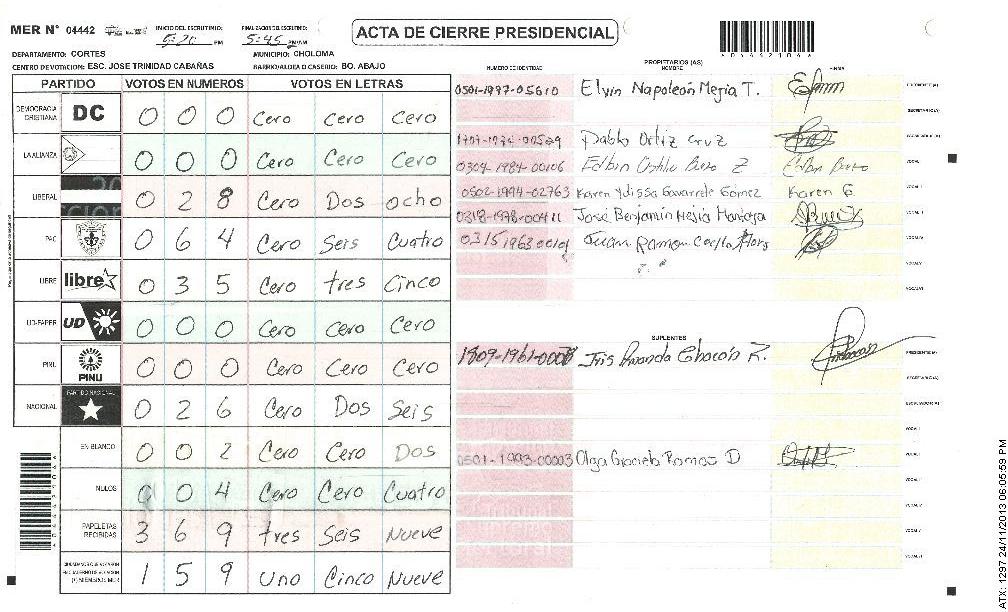 MER N° 04442
INICIO DEL ESCRUTINIO: 5:20 PM
FINALIZACION DEL ESCRUTINIO: 5:45 PM
ACTA DE CIERRE PRESIDENCIAL
DEPARTAMENTO: CORTES
MUNICIPIO: CHOLOMA
CENTRO DE VOTACION: ESC. JOSE TRINIDAD CABAÑAS
BARRIO/ALDEA O CASERIO: BO. ABAJO
PARTIDO VOTOS EN NUMEROS VOTOS EN LETRAS
DEMOCRACIA CRISTIANA DC 0 0 0 Cero Cero Cero
LA ALIANZA 0 0 0 Cero Cero Cero
LIBERAL 0 2 8 Cero Dos ocho
PAC 0 6 4 Cero Seis Cuatro
LIBRE libre 0 3 5 Cero tres Cinco
UD-FAPER UD 0 0 0 Cero Cero Cero
PINU PINU 0 0 0 Cero Cero Cero
NACIONAL PARTIDO NACIONAL 0 2 6 Cero Dos Seis
EN BLANCO 0 0 2 Cero Cero Dos
NULOS 0 0 4 Cero Cero Cuatro
PAPELETAS RECIBIDAS 3 6 9 tres Seis Nueve
1 5 9 uno Cinco Nueve
NUMERO DE IDENTIDAD PROPIETARIOS (AS) NOMBRE FIRMA
0501-1997-05610 Elvin Napoleón Mejia T. PRESIDENTE (A)
SECRETARIO (A)
Pablo Ortiz Cruz ESCRUTADOR (A)
0304-1984-00106 VOCAL I
0502-1994-02763 Karen Yulissa Gavarrete Gómez Karen G
José Benjamín Mejía
Juan Ramon
SUPLENTES
Iris Chacón R. PRESIDENTE (A)
SECRETARIO (A)
ESCRUTADOR (A)
0501-1993-00003 Olga Graciela Ramos D
ATX: 1297 24/11/2013 06:05:59 PM